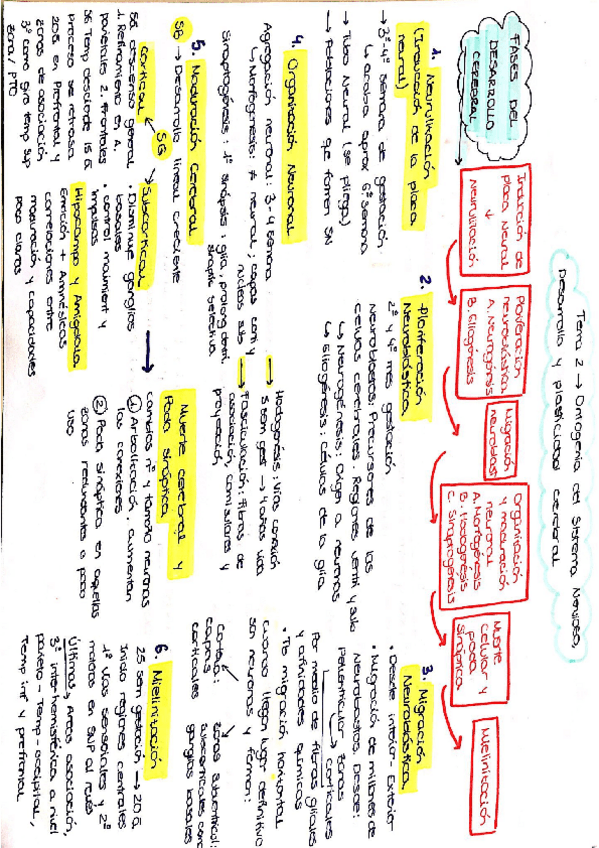 Tema 2 → Ontogenia del Sistema Nervioso,
Desarrollo y plasticidad cerebral
FASES DEL
DESARROLLO
CEREBRAL
Inducción de
placa Neural
↓
Neurulación
Proliferación
neuroblástica
A. Neurogénesis
B. Gliogénesis
Migración
neuroblast
Organización
y maduración
neuronal
A. Morfogénesis
B. Hodogénesis
C. Sinaptogénesis
Muerte
celular y
poda
sináptica
Mielinización
1. Neurulización
(Inducción de la placa
neural)
→ 3ª-4ª Semana de gestación
↳ acaba aprox 6ª Semana
→ Tubo Neural (se pliega)
→ Poblaciones que formen SN
2. Proliferación
Neuroblástica
2º y 4º mes gestación
Neuroblastos: Precursores de las
células cerebrales. Regiones ventri y sub
↳ Neurogénesis: Origen a neuronas
↳ Gliogénesis: células de la glía
3. Migración
Neuroblástica
• Desde interior-Exterior
• Migración de millones de
Neuroblastos. Desde:
Periventricular → zonas
corticales
Por medio de fibras gliales
y afinidades químicas
• Tb migración horizontal
cuando llegan lugar definitivo
son neuronas y forman:
corteza:
capas
corticales
zonas subcortical:
subcorticales como
ganglios basales
4. Organización Neuronal
Agregación neuronal: 3-4 semana
↳ Morfogénesis: ≠ neural; capas cort y
núcleos sub
Sinaptogénesis: 1ª sinápsis: glía, prolong dend.
Hodogénesis: Vías conexión
5 sem gest → 4 años vida
→ Fasciculación: fibras de
asociación, comisulares y
proyección
5. Maduración Cerebral
SB → Desarrollo lineal creciente
SG
Cortical
SG descenso general
1. Refinamiento en A.
parietales 2. Frontales
SG Temp desciende 15 a
Proceso se retrasa
20a en Prefrontal y
zonas de asociación
3º como giro temp sup
zona / PTO
Subcortical
• Disminuye ganglios
basales
• control movimient y
impulsos
Hipocampo y Amígdala
Emoción + Amnésicas
correlaciones entre
maduración y capacidades
poco claras
Muerte cerebral y
Poda sináptica
cambios nº y tamaño neuronas
① Arbolización, aumentan
las conexiones
② Poda sináptica en aquellas
zonas redundantes o poco
uso
6. Mielinización
25 sem gestación → 20 a
Inicio regiones centrales
1º Vías sensoriales y 2º
motoras en SNP al revés
Últimas → Áreas asociación,
3º inter-hemisférica a nivel
parieto-Temp-occipital,
Temp inf y prefrontal